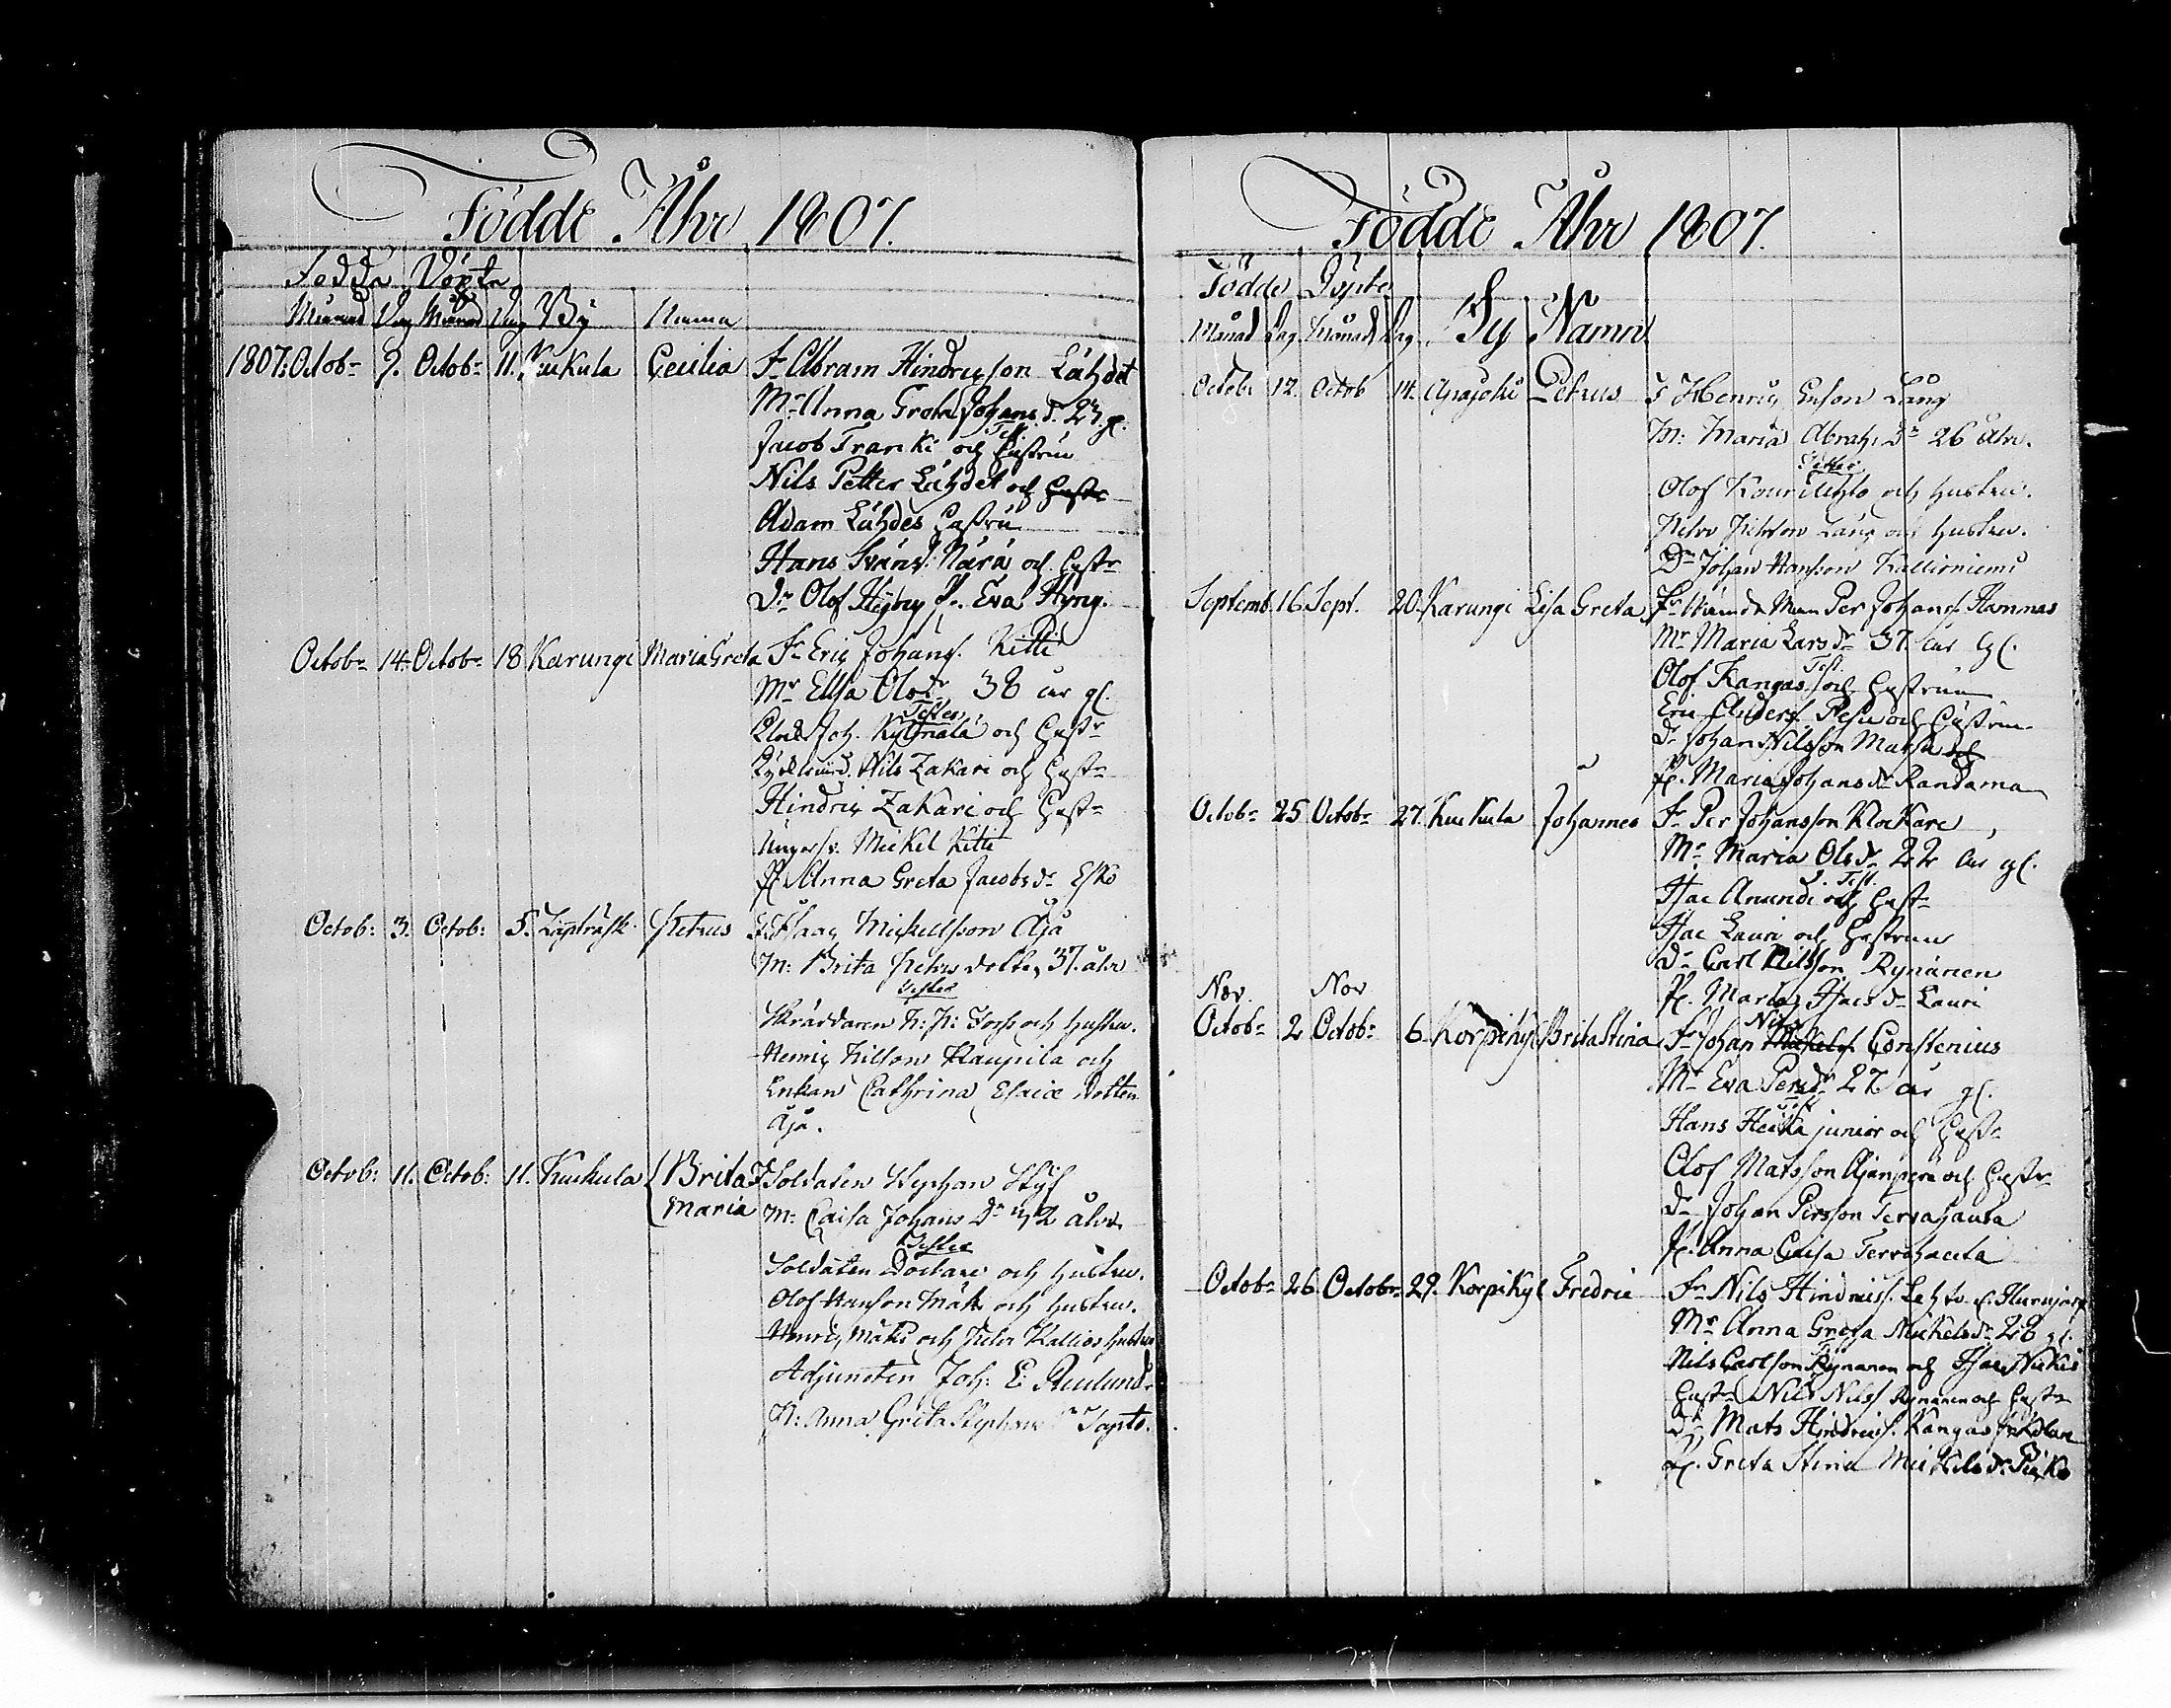 Födde Åhr 1807.
Födda Döpta
Månad Dag Månad Dag By Namn
1807: Octobr 9. Octobr 11. Kukula Cecilia Fr Abram Hindricson Lähdet
Mr Anna Greta Johans dr 23 gl.
Test.
Jacob Franki och Hustru
Nils Petter Lähdet och Hustr
Adam Lähdes Hustru
Hans Närä och Hustr
Dr Olof P. Eva
Octobr 14. Octobr 18 Karungi Maria Greta Fr Eric Johans. Kitti
Mr Ellsa Olsdr 38 år gl.
Testes
Joh. Kylmälä och Hustr
Nils Zakari och Hustr
Hindric Zakari och Hustr
Ungersv. Mickel Kitti
P. Anna Greta Jacobsdr Esko
Octob: 3. Octob: 5. Petrus F. Isaac Mickelsson Äjä
M: Brita Petersdotter 37. åhr
Testes
Skräddaren och Hustru.
Henric Nilsson Kaupila och
Enkan Cathrina Esaiæ dotter
Äjä.
Octob: 11. Octob: 11. Kuckula Brita F Soldaten Stephan Styf
Maria M: Caisa Johans Dr 42 åhr
Testes
Soldaten och Hustru.
Olof Hanson Mäki och Hustru.
Henric Mäki och Petter Kallios Hustru
Adjuncten Joh: E:
P: Anna Greta Stephans Dr
Födde Åhr 1807.
Födde Döpte
Månad Dag Månad Dag By Namn
Octobr 12. Octob 14. Apajoki Petrus F Henric Erson Lång
M: Maria Abrah: Dr 26 åhr.
Testes
Olof och Hustru.
Petter Petterson Lång och Hustru.
Dr Johan Hanson Kallioniemi
Septemb. 16. Sept. 20. Karungi Lisa Greta Fr Per Johans. Hannas
Mr Maria Lars dr 37. år gl.
Test.
Olof Kangas och Hustru
Eric Anders. och Hustru
Dr Johan Nilsson Matsu och
P. Maria Johans dr Kandama
Octobr 25 Octobr 27. Kuckula Johannes Fr Per Johansson Klockare
Mr Maria Olsdr 22 år gl.
Test.
Isac Anundi och Hustr
Isac Lauri och Hustru
Dr Carl Nilsson Rynänen
P. Maria Isacs dr Lauri
Nov. Nov
Octobr 2 Octobr 6 Korpikyl Brita Stina Fr Johan Nils Constenius
Mr Eva Persdr 27 år gl.
Test
Hans Heikka junior och Hustr
Olof Matsson Äjänperä och Hustr
Dr Johan Persson Tervahauta
P. Anna Caisa Tervahauta
Octobr 26. Octobr 29. Korpikyl Fredric Fr Nils Hindrics. Lehto
Mr Anna Greta Mickelsdr 28 gl.
Nils Carlsson Rynänen och Isac Niekis
Hustr Nils Nilss. Rynänen och Hustr
Dr Mats Hindrics. Kangas
P. Greta Stina Mickels dr